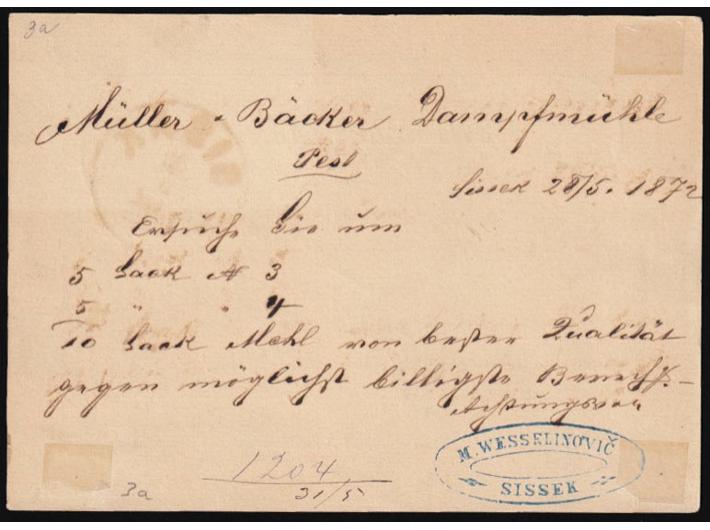 3a
Müller & Bäcker Dampfmühle
Pest
Sissek 28/5. 1872
Ersuche Sie um
5 Sack № 3
5 " " 4
10 Sack Mehl von bester Qualität
gegen möglichst billigste
Achtungsvoll
M. WESSELINOVIČ
SISSEK
1204
31/5
3a